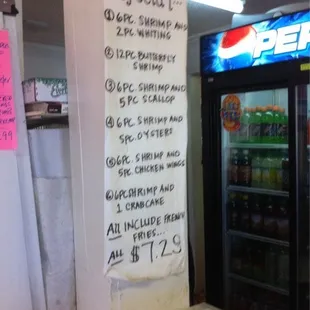 ① 6PC. SHRIMP AND
2 PC. WHITING
② 12 PC BUTTERFLY
SHRIMP
③ 6PC. SHRIMP AND
5 PC SCALLOP
④ 6 PC. SHRIMP AND
5 PC. OYSTERS
⑤ 6PC. SHRIMP AND
5 PC. CHICKEN WINGS
⑥ 6PC SHRIMP AND
1 CRABCAKE
All INCLUDE FRENCH
FRIES...
All $7.29
PEP